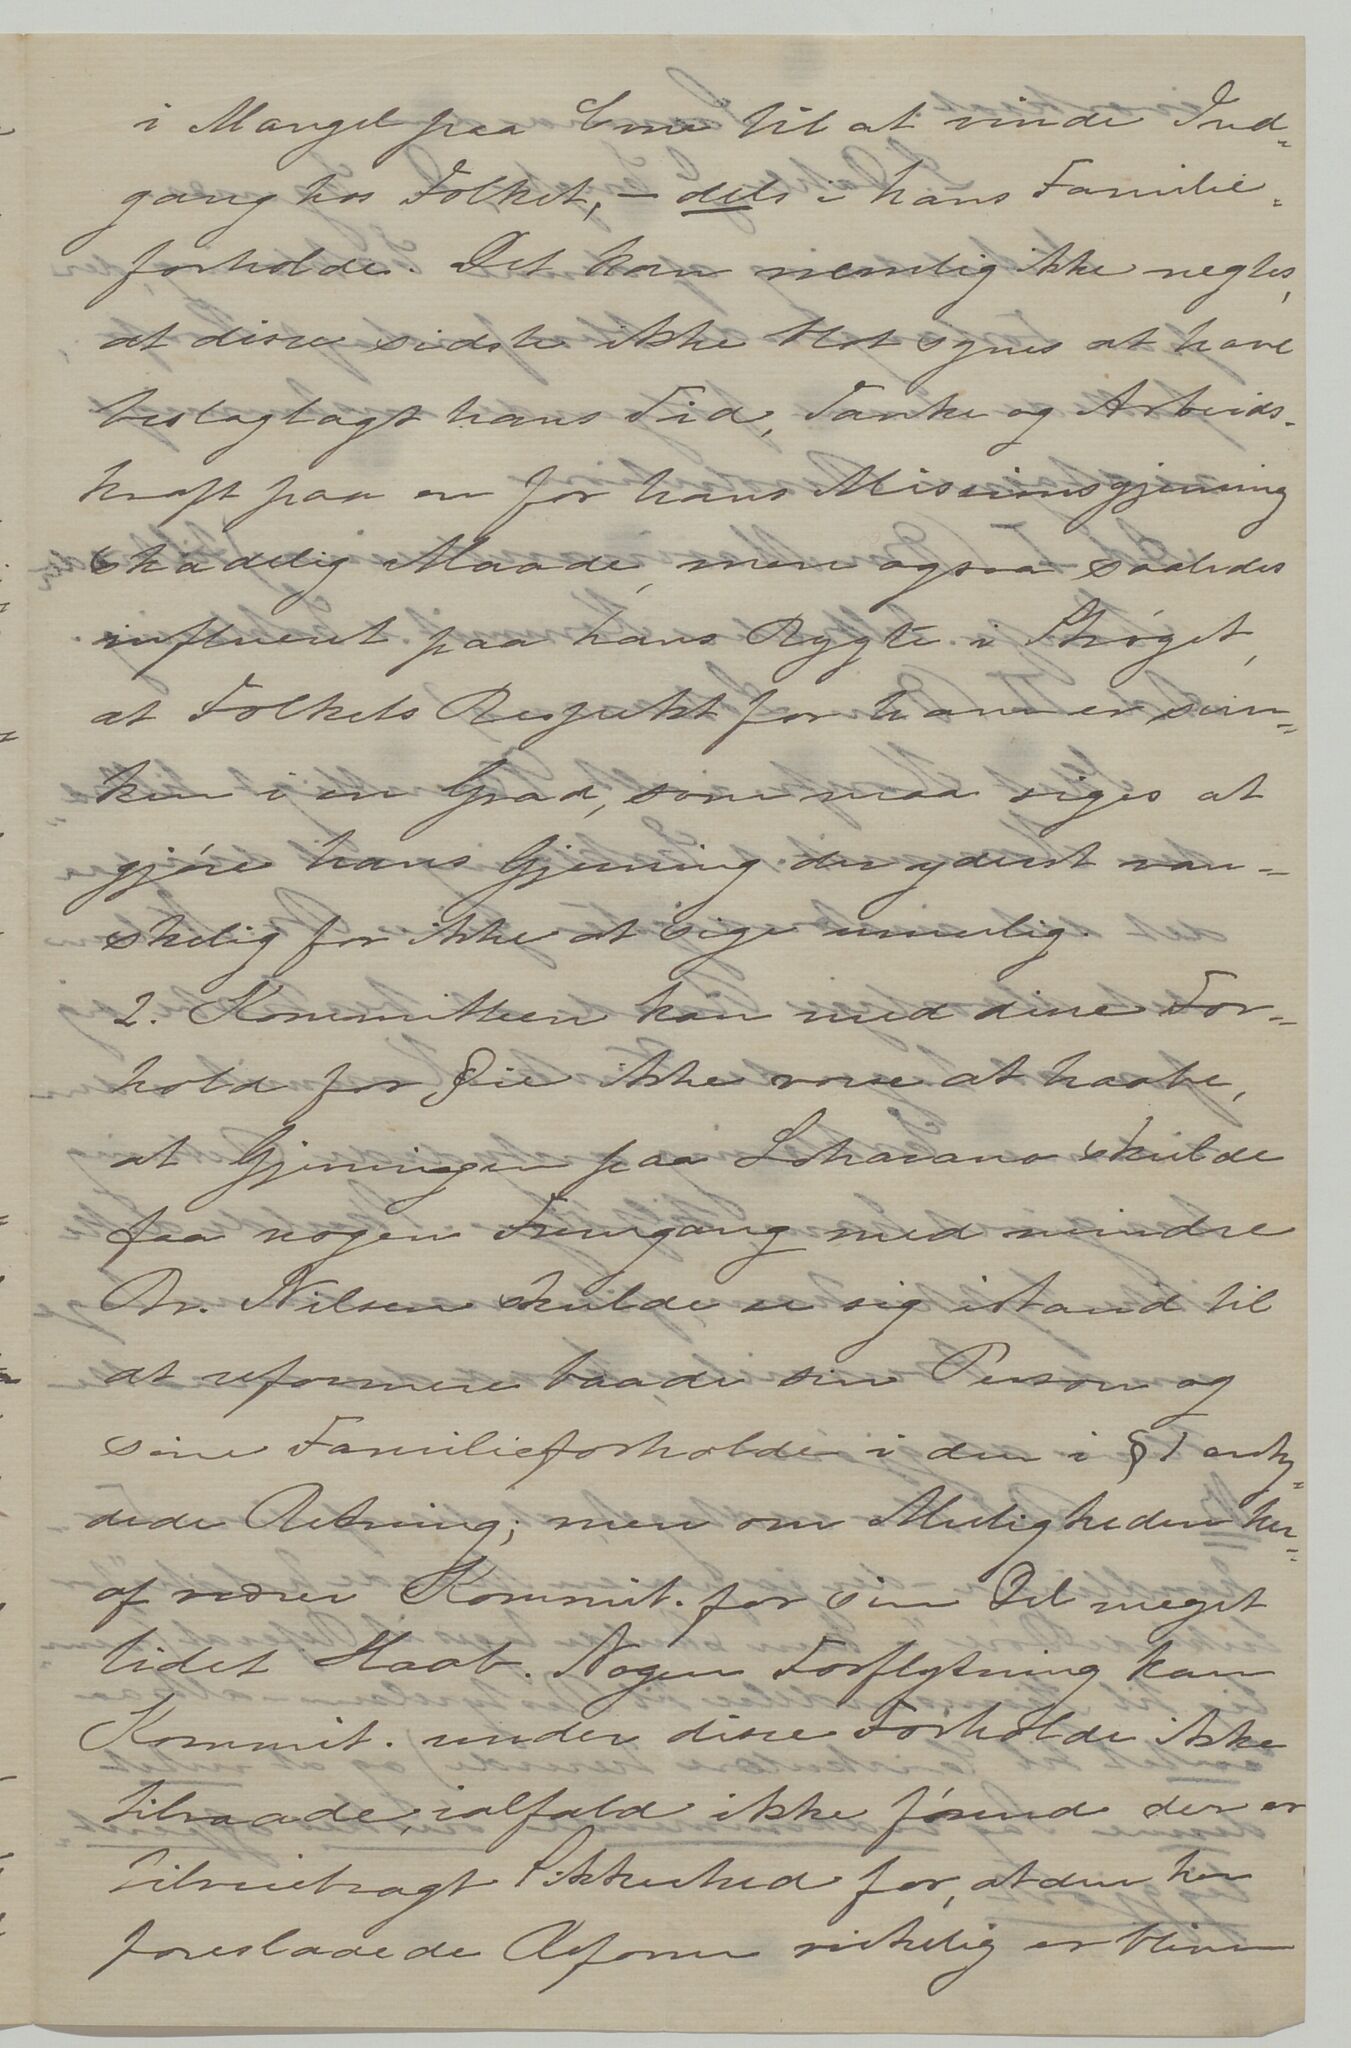 i Mangel paa Evne til at vinde Ind-
gang hos Folket, – dels i hans Familie-
forholde. Det kan nemlig ikke negtes,
at disse sidste ikke blot synes at have
beslaglagt hans Tid, Tanke og Arbeids-
kraft paa en for hans Missionsgjerning
skadelig Maade, men ogsaa saaledes
influeret paa hans Rygte i Strøget,
at Folkets Respekt for ham er sun-
ken i en Grad, som maa siges at
gjøre hans Gjerning der yderst van-
skelig for ikke at sige umulig.
2. Kommitteen kan med disse For-
hold for Øie ikke vove at haabe,
at Gjerningen paa Soharano skulde
faa nogen Fremgang med mindre
Br. Nilsen skulde se sig istand til
at reformere baade sin Person og
sine Familieforholde i den i § 1 anty-
dede Retning; men om Muligheden her-
af nærer Kommit. for sin Del meget
lidet Haab. Nogen Forflytning kan
Kommit. under disse Forholde ikke
tilraade, ialfald ikke førend der er
tilveiebragt Sikkerhed for, at den her
foreslaaede Reform virkelig er bleven